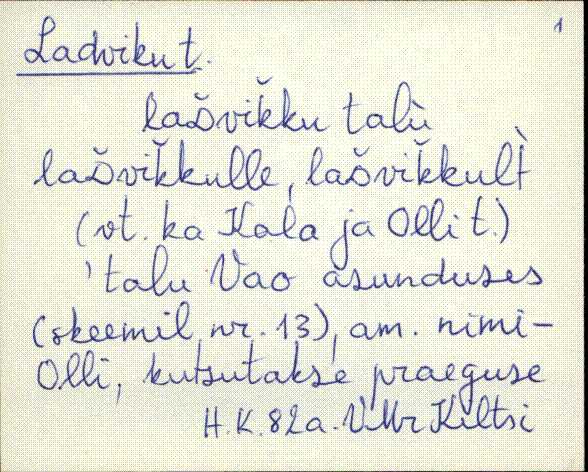 1
Ladviku t.
lašvĭkku talù
lašvĭkkulle, lašvĭkkult̀
(vt. ka Kala ja Olli t.)
'talu Vao asunduses
(skeemil nr. 13), am. nimi-
Olli, kutsutakse praeguse
H.K.82a. VMr Kiltsi